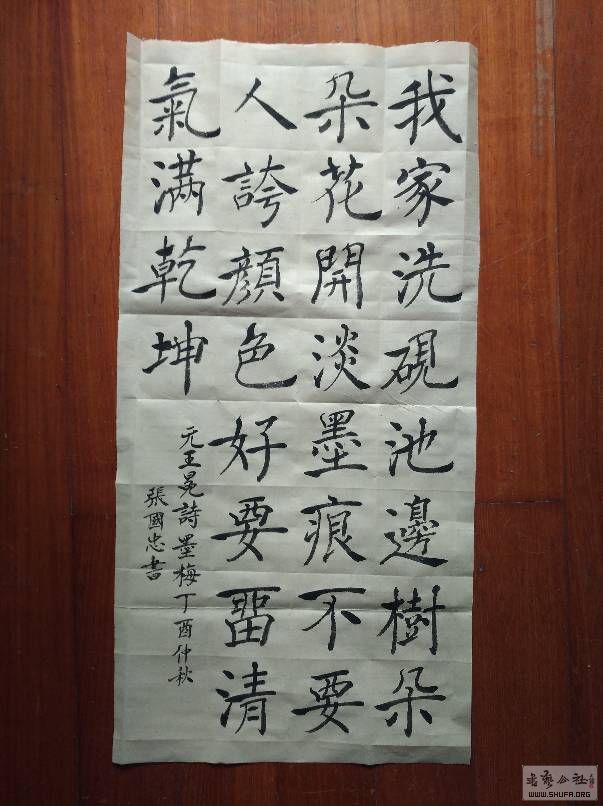 我家洗硯池邊樹朵
朵花開淡墨痕不要
人誇顏色好要畱清
氣滿乾坤
元王冕詩墨梅丁酉仲秋
張國忠書
书艺公社
WWW.SHUFA.ORG